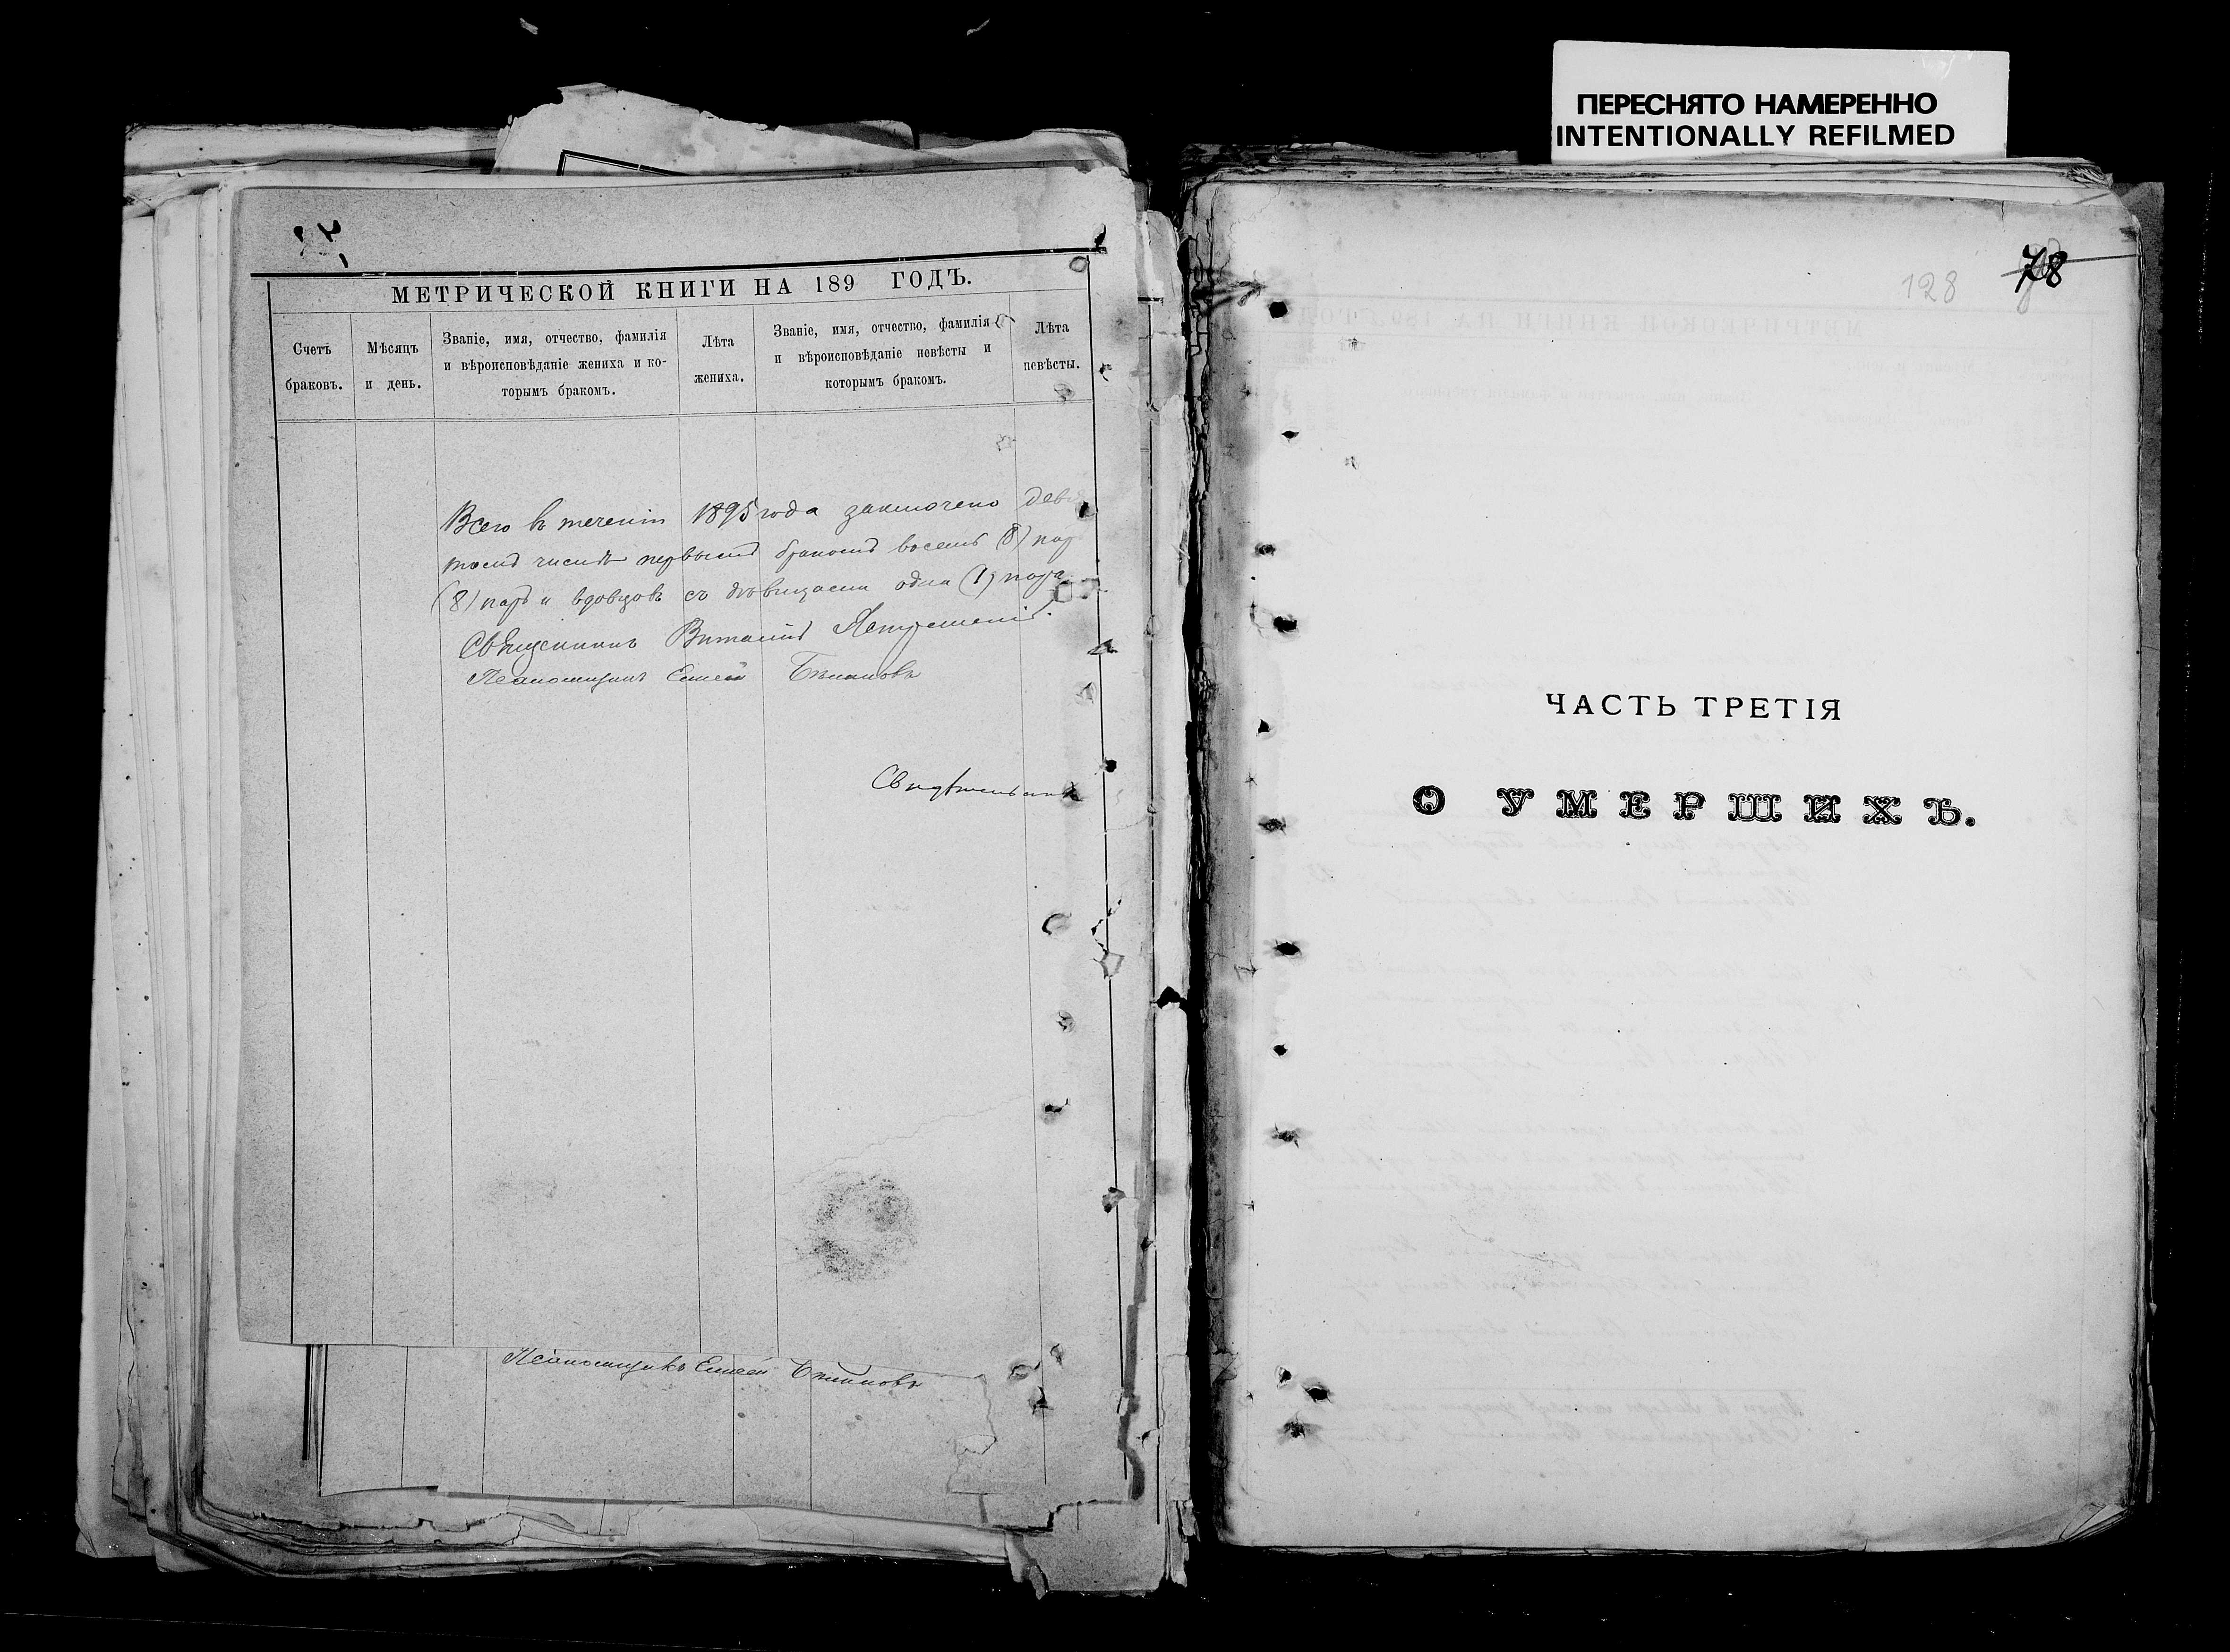 ПЕРЕСНЯТО НАМЕРЕННО
INTENTIONALLY REFILMED
МЕТРИЧЕСКОЙ КНИГИ НА 189 ГОДЪ.
Счетъ браковъ.
Мѣсяцъ и день.
Званіе, имя, отчество, фамилія
и вѣроисповѣданіе жениха и ко-
торымъ бракомъ.
Лѣта жениха.
Званіе, имя, отчество, фамилія
и вѣроисповѣданіе невѣсты и
которымъ бракомъ.
Лѣта невѣсты.
Всего в теченіи 1895 года заключено дев
томъ числѣ первымъ бракомъ восемь (8) пар
(8) паръ и вдовцовъ съ дѣвицами одна (1) пара
Священникъ Виталій
Псаломщикъ Елисей
Псаломщикъ Елисей
128
78
ЧАСТЬ ТРЕТІЯ
О УМЕРШИХЪ.